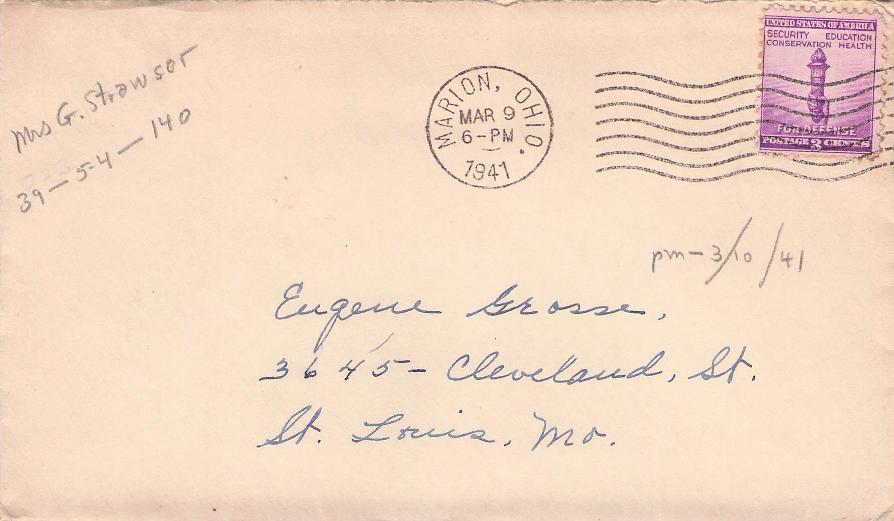 Mrs G. Strawser
39-54-140
MARION, OHIO.
MAR 9
6-PM
1941
UNITED STATES OF AMERICA
SECURITY EDUCATION
CONSERVATION HEALTH
FOR DEFENSE
POSTAGE 3 CENTS
pm-3/10/41
Eugene Grosse,
3645- Cleveland, St.
St. Louis, Mo.